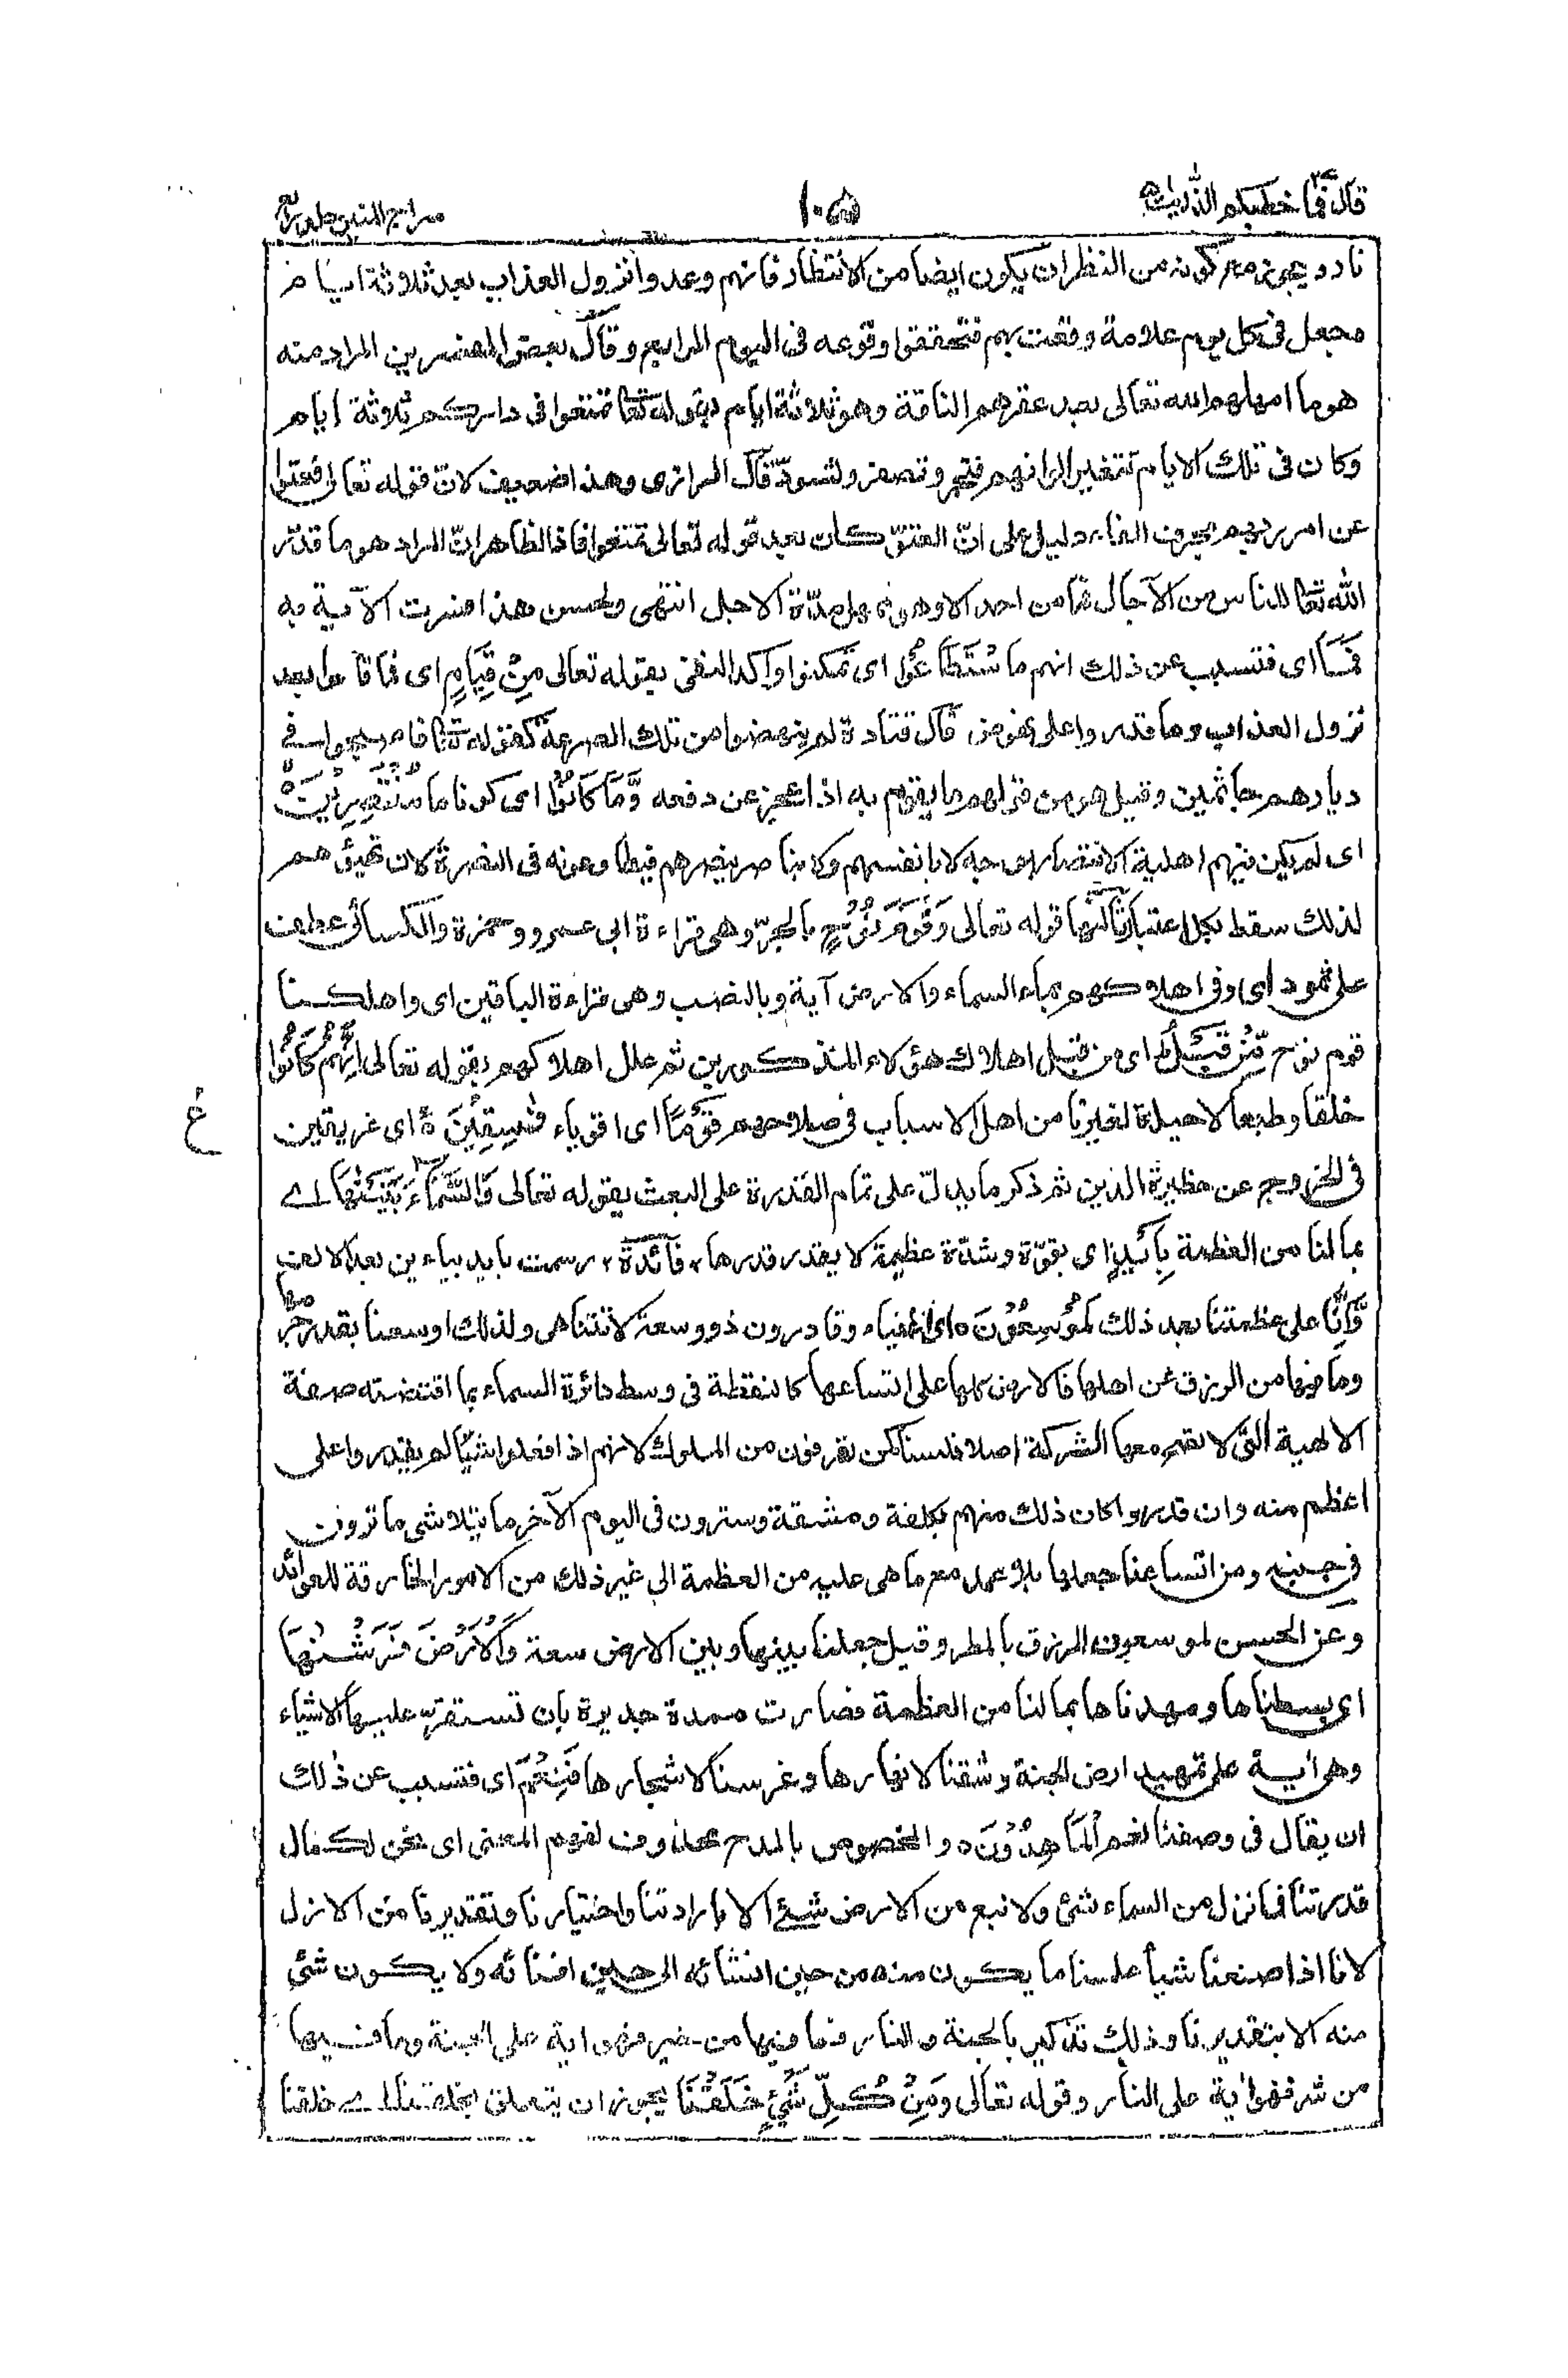 قال فما خطبكم الذريت ٥١
١٠٥
سراج المنير جلد رابع
نادد يجوز مع كونه من النظر ان يكون ايضا من الانتظار فانهم وعدوا نزول العذاب بعد ثلاثة ايام
فجعل فى كل يوم علامة وقعت بهم فتحققوا وقوعه فى اليوم الرابع وقال بعض المفسرين المراد منه
هو ما امهلهم الله تعالى بعد عقرهم الناقة وهو ثلاثة ايام بقوله تعا تمتعوا فى داركم ثلاثة ايام
وكان فى تلك الايام تتغير الوانهم فتحمر وتصفر وتسودّ قال الرازى وهذا ضعيف لانّ قوله تعالى فعتوا
عن امر ربهم بحرف الفاء دليل على انّ العتوّ كان بعد قوله تعالى تمتعوا فاذا الظاهر انّ المراد هو ما قدّر
الله تعا للناس من الآجال فما من احد الا وهو ممهل مدّة الاجل انتهى ولحسن هذا فسرت الآية به
فَمَا اى فتسبب عن ذلك انهم ما سْتَطَاعُوْا اى تمكنوا واكد النفى بقوله تعالى مِنْ قِيَامٍ اى فما قاموا بعد
نزول العذاب وما قدروا على نهوض قال قتادة لم ينهضوا من تلك الصرعة كقوله تعا فاصبحوا فى
ديارهم جاثمين وقيل هو من قولهم ما يقوم به اذا عجز عن دفعه وَّمَا كَانُوْا اى كونا ما مُنْتَصِرِيْنَ ۝
اى لم يكن فيهم اهلية الانتصار بوجه لا بانفسهم ولا بناصر ينصرهم فيطاوعونه فى النصرة لان تهيؤهم
لذلك سقط بكل اعتبار ثالثها قوله تعالى وَقَوْمَ نُوْحٍ بالجرّ وهى قراءة ابى عمرو وحمزة والكسائى عطف
على ثمود اى وفى اهلاكهم بماء السماء والارض آية وبالنصب وهى قراءة الباقين اى واهلكنا
قوم نوح مِّنْ قَبْلُ اى من قبل اهلاك هؤلاء المذكورين ثم علل اهلاكهم بقوله تعالى اِنَّهُمْ كَانُوْا
خلقا وطبعا لا حيلة لغيرنا من اهل الاسباب فى صلاحهم قَوْمًا اى اقوياء فٰسِقِيْنَ ۝ اى غريقين
ع
فى الخروج عن حظيرة الدين ثم ذكر ما يدلّ على تمام القدرة على البعث بقوله تعالى وَالسَّمَاءَ بَنَيْنٰهَا اے
بما لنا من العظمة بِاَيْىدٍ اى بقوّة وشدّة عظيمة لا يقدر قدرها، فائدة، رسمت بايىد بياءين بعد الالف
وَّاِنَّا على عظمتنا بعد ذلك لَمُوْسِعُوْنَ ۝ اى اغنياء وقادرون ذو وسعة لا تتناهى ولذلك اوسعنا بقدر جرمها
وما فيها من الرزق عن اهلها فالارض كلها على اتساعها كالنقطة فى وسط دائرة السماء بما اقتضته صفة
الالهية التى لا تصح معها الشركة اصلا فلسنا كمن تعرفون من الملوك لانهم اذا فعلوا شيئا لم يقدروا على
اعظم منه وان قدروا كان ذلك منهم بكلفة ومشقة وسترون فى اليوم الآخر ما يتلاشى ما ترون
فى جنبه ومن اتساعنا جعلها بلا عمد مع ما هى عليه من العظمة الى غير ذلك من الامور الخارقة للعوائد
وعن الحسن لموسعون الرزق بالمطر وقيل جعلنا بينها وبين الارض سعة وَالْاَرْضَ فَرَشْنٰهَا
اى بسطناها ومهدناها بما لنا من العظمة فصارت ممهدة جديرة بان تستقرّ عليها الاشياء
وهى اٰية على تمهيد ارض الجنة وشقنا لانهارها وغرسنا لاشجارها فَنِعْمَ اى فتسبب عن ذلك
ان يقال فى وصفنا نعم الْمَاهِدُوْنَ ۝ والمخصوص بالمدح محذوف لفهم المعنى اى نحن لكمال
قدرتنا فما نزل من السماء شئ ولا نبع من الارض شئ الا بارادتنا واختيارنا وتقديرنا من الازل
لانا اذا صنعنا شيأ علمنا ما يكون منه من حين انشائه الى حين افنائه ولا يكون شئ
منه الا بتقديرنا وذلك تذكير بالجنة والنار فما فيها من خير فهو اية على الجنة وما فيها
من شر فهو اٰية على النار وقوله تعالى وَمِنْ كُلِّ شَيْءٍ خَلَقْنَا يجوز ان يتعلق بخلقنا اے خلقنا